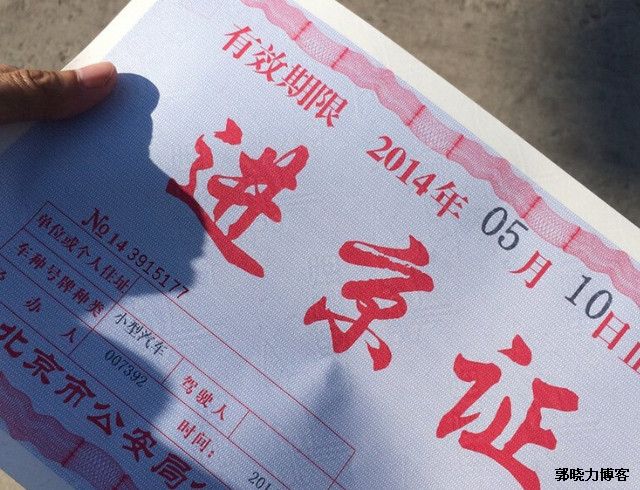 有效期限 2014年 05月 10日止
进京证
No 14 3915177
单位或个人住址
车种号牌种类 小型汽车
办人 007392 驾驶人
时间: 201
北京市公安局
郭晓力博客